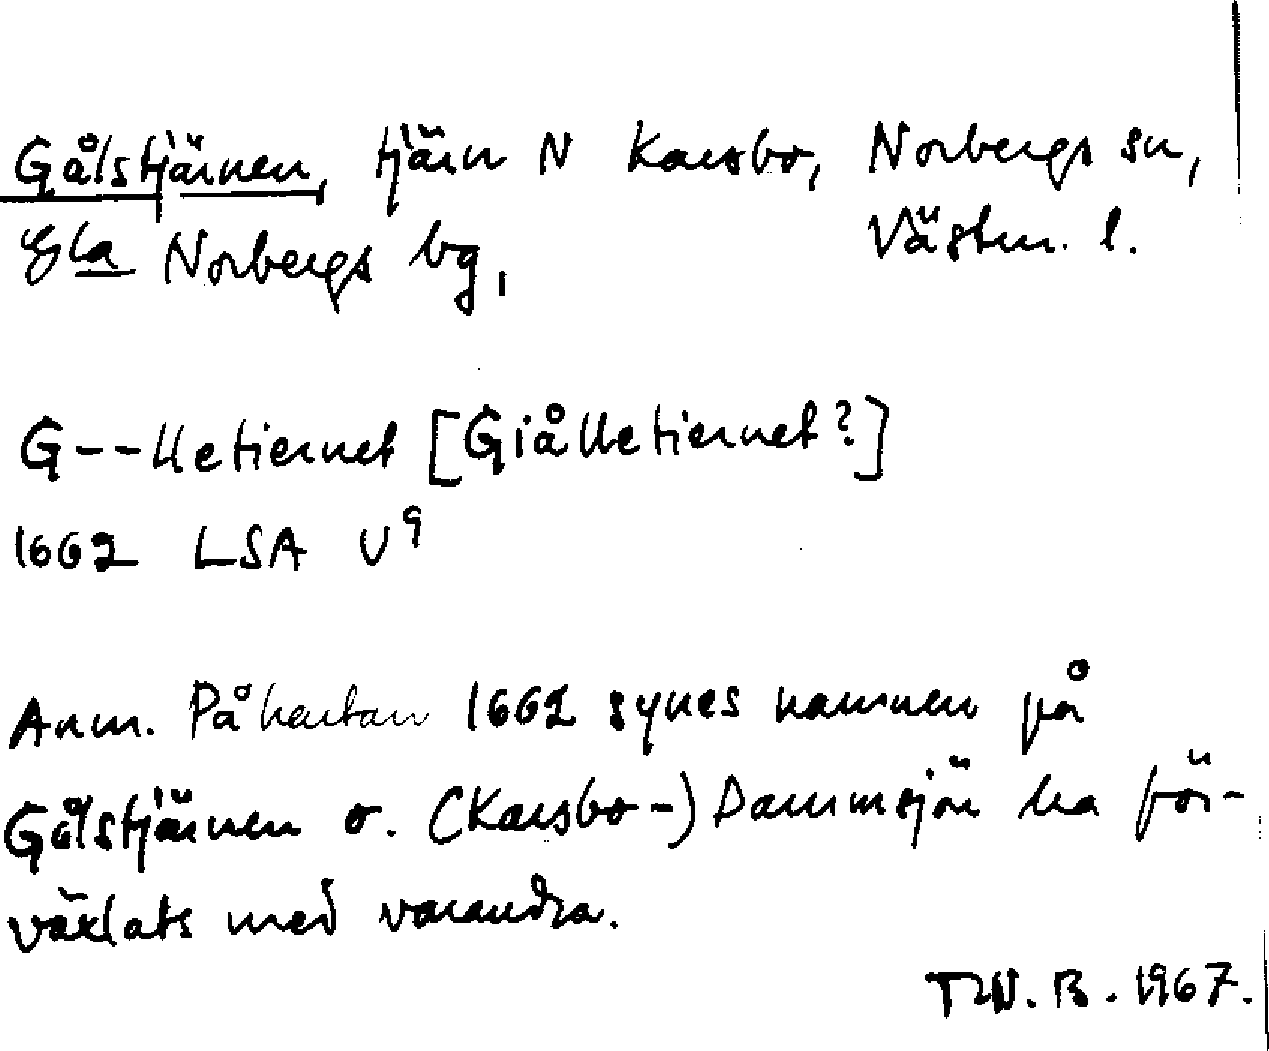 Gålstjärnen, tjärn N Karsbo, Norbergs sn,
Gla Norbergs bg, Västm. l.
G--lletiernet [Giålletiernet?]
1662 LSA U9
Anm. På kartan 1662 synes namnen på
Gålstjärnen o. (Karsbo-) Dammsjön ha för-
växlats med varandra.
B. 1967.